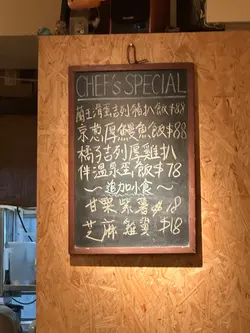 CHEF's SPECIAL
蘭王滑蛋吉列豬扒飯$88
京葱厚鰻魚飯$88
橘子吉列厚雞扒
伴溫泉蛋飯$78
~追加小食~
甘栗紫薯$18
芝麻雞翼$18